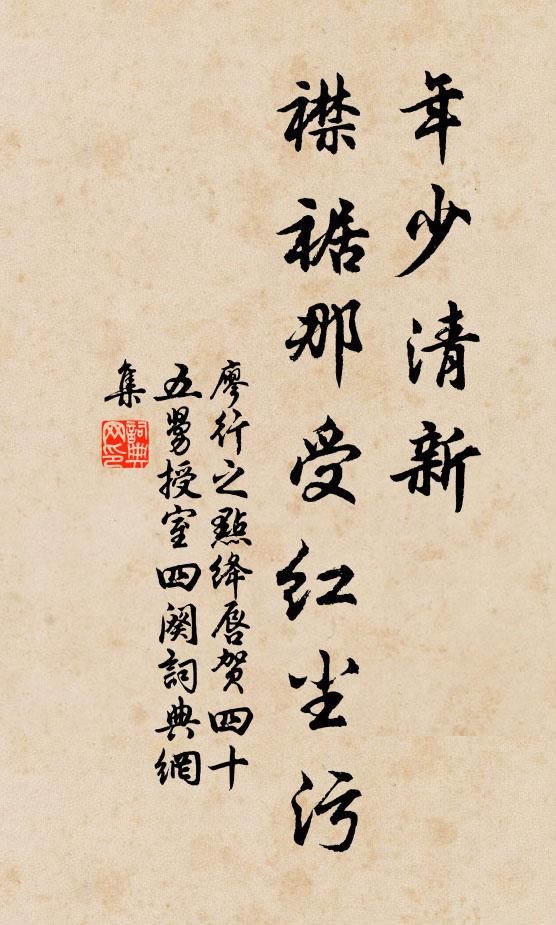 年少清新
襟裾那受红尘污
廖行之點绛唇贺四十
五舅授室四阕詞典網
集
詞典網印